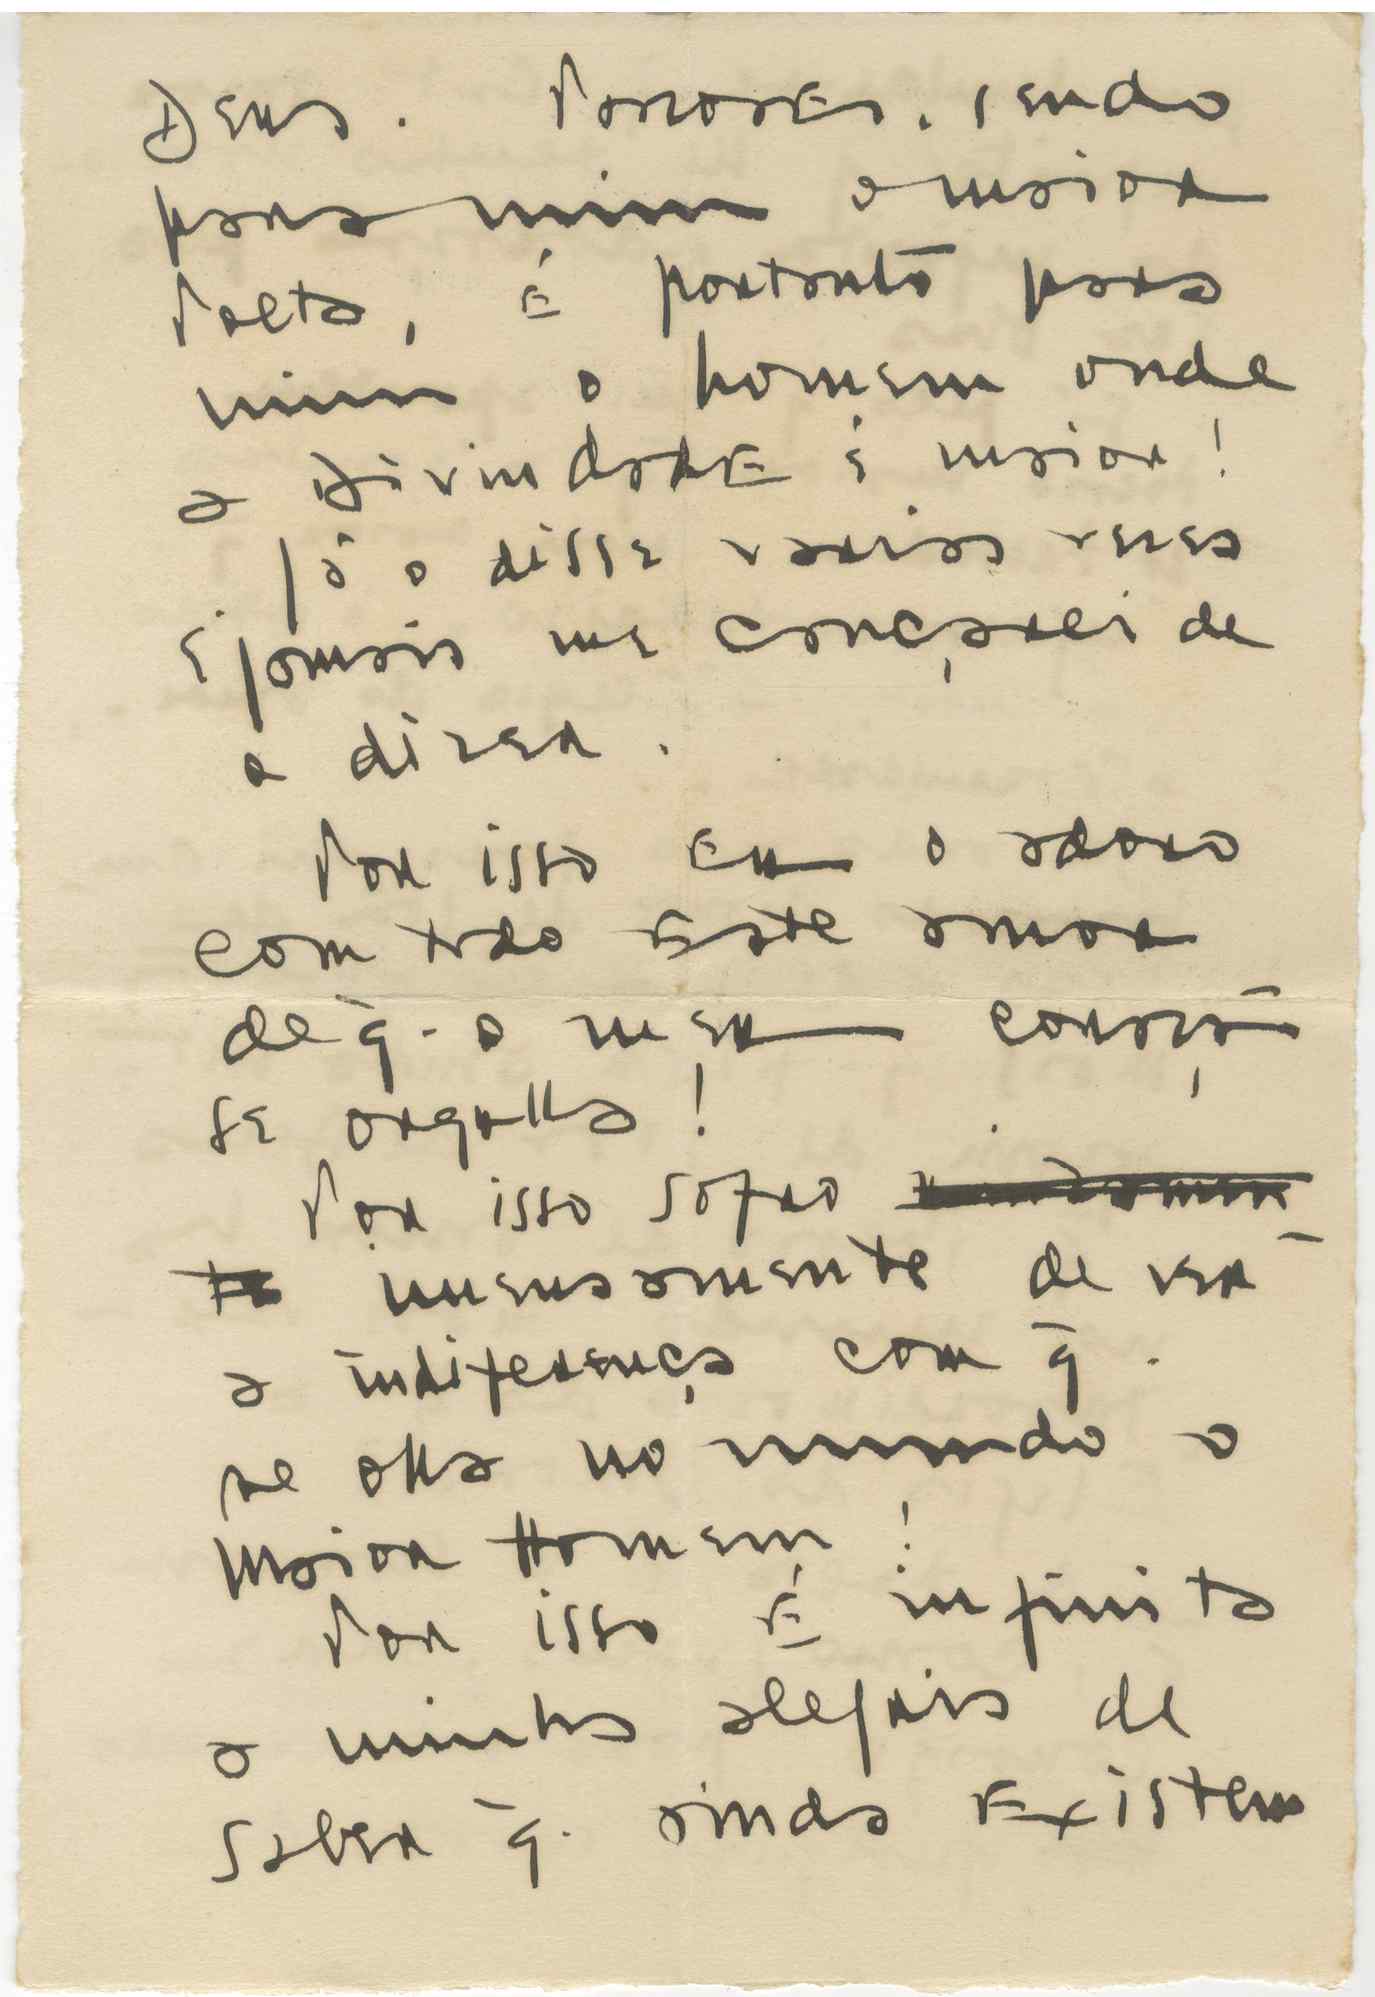 Deus. Pascoaes, sendo
para mim o maior
Poeta, é portantō para
mim o homem onde
a Divindade é maior!
Já o disse varias vezes
E jamais me cançarei de
o dizer.
Por isso eu o adoro
com todo este amor
de q̄. o meu coraçā
se orgulha!
Por isso sofro
te imensamente de ver
a indiferença com q̄.
se olha no mundo o
Maior Homem!
Por isso É infinita
a minha alegria de
saber q̄. ainda Existem